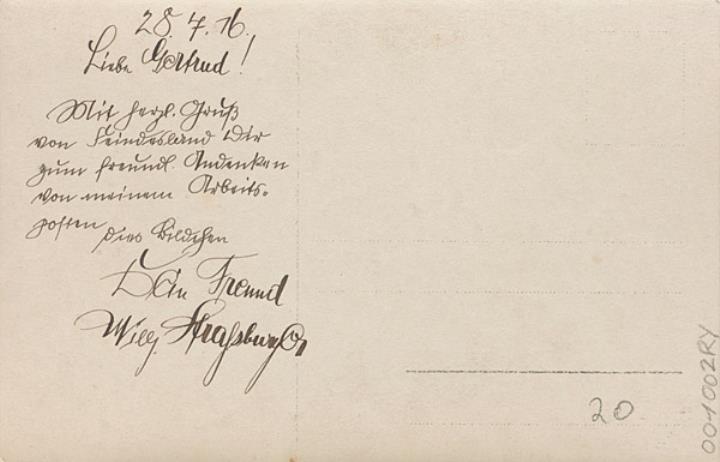 28.7.16.
Liebe Gertrud!
Mit herzl. Gruß
von Feindesland Dir
zum freundl. Andenken
von meinem Arbeits-
posten
dies Bildchen
Dein Freund
Willy Straßburger
20
001002RY